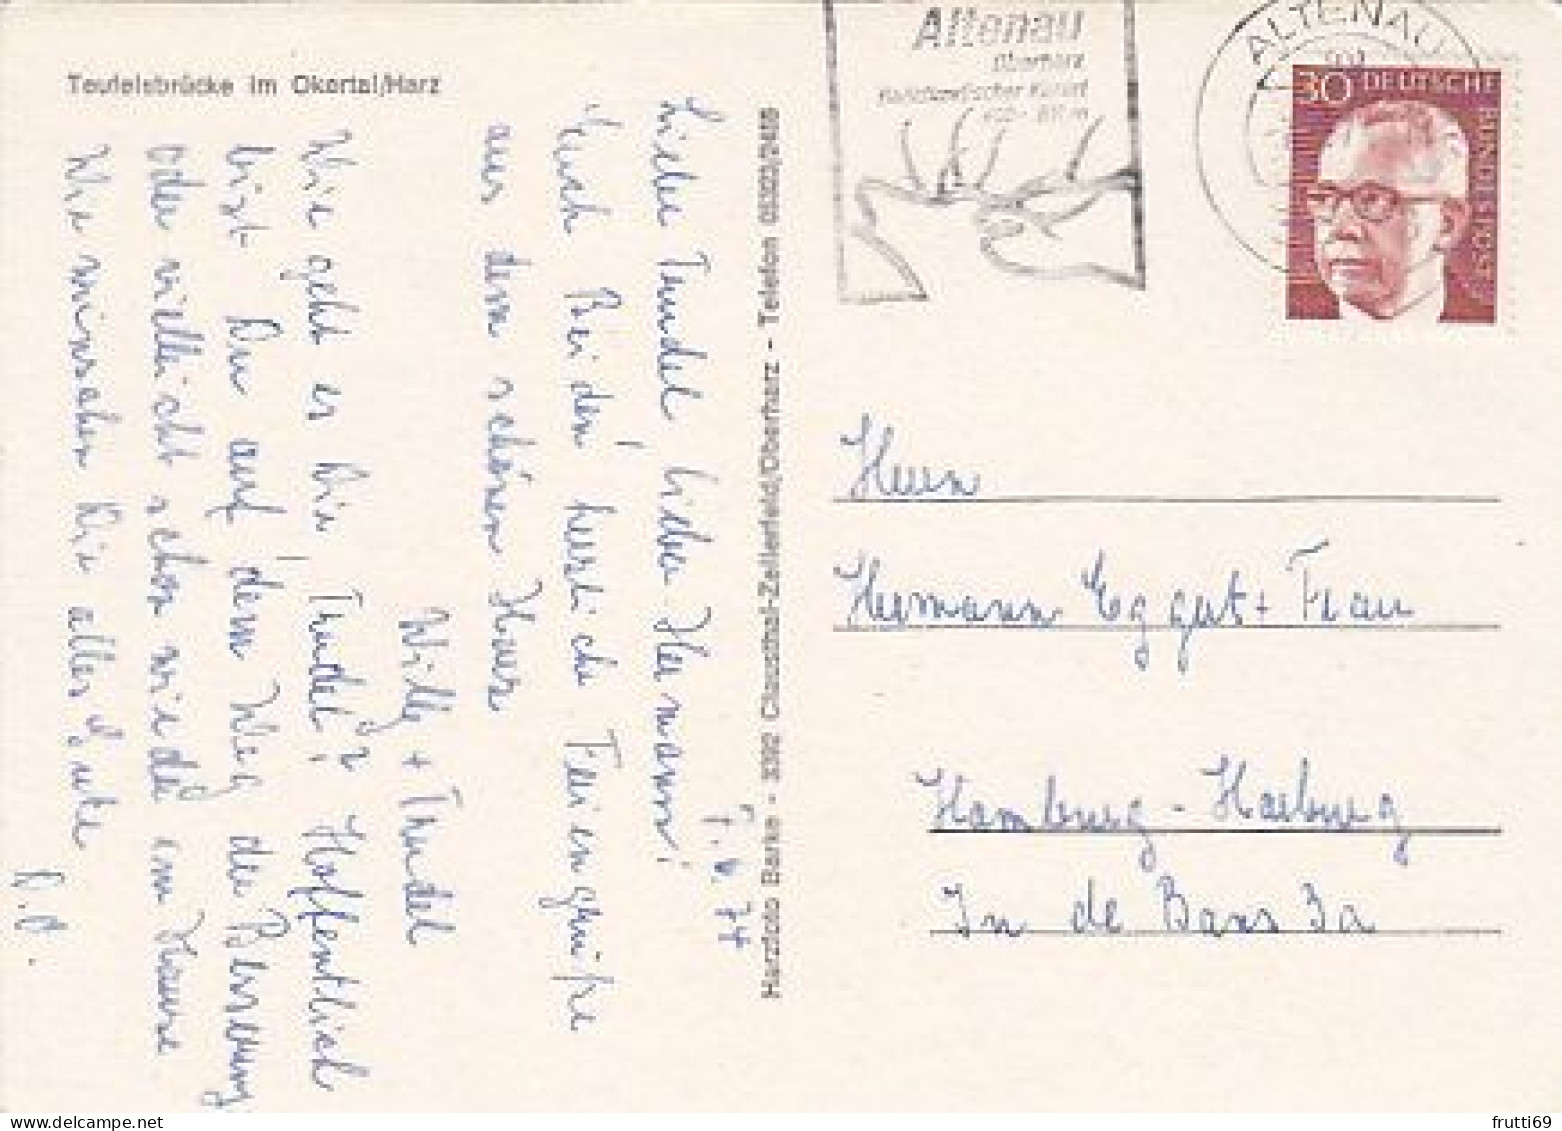 Teufelsbrücke im Okertal/Harz
7.6.74
Liebe Trudel, lieber Hermann!
Euch Beiden herzliche Feriengrüße
aus dem schönen Harz
Willy + Trudel
Wie geht es Dir, Trudel? Hoffentlich
bist Du auf dem Weg der Besserung
oder vielleicht schon wieder im Hause
Wir wünschen Dir alles Gute
D.O.
Harzfoto Barke - 3392 Clausthal-Zellerfeld/Oberharz - Telefon 05323/3485
Altenau
Oberharz
Heilklimatischer Kurort
ALTENAU
30 DEUTSCHE
BUNDESPOST
Herrn
Hermann Eggert + Frau
Hamburg-Harburg
In de Bans 3a
frutti69